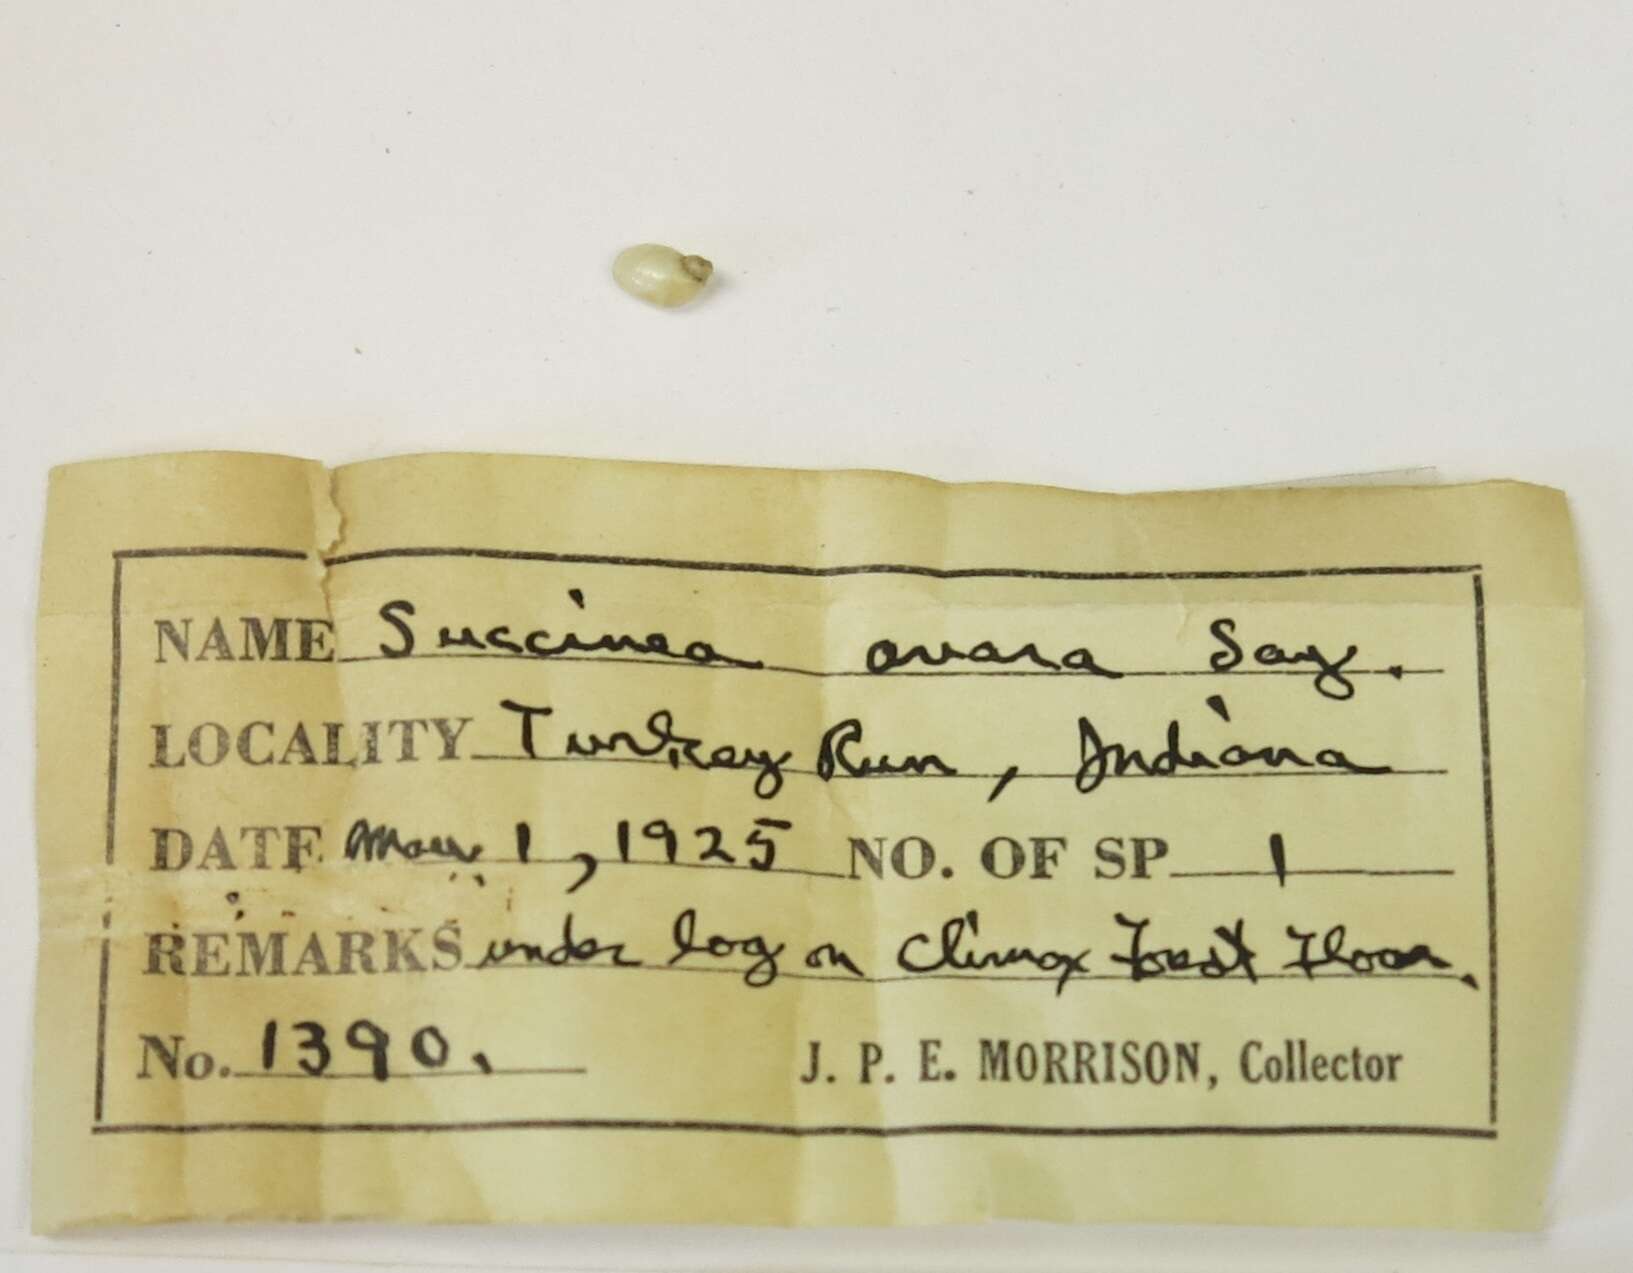 NAME Succinea avara Say.
LOCALITY Turkey Run, Indiana
DATE May 1, 1925 NO. OF SP 1
REMARKS under log on Climax Forest Floor.
No. 1390.
J. P. E. MORRISON, Collector